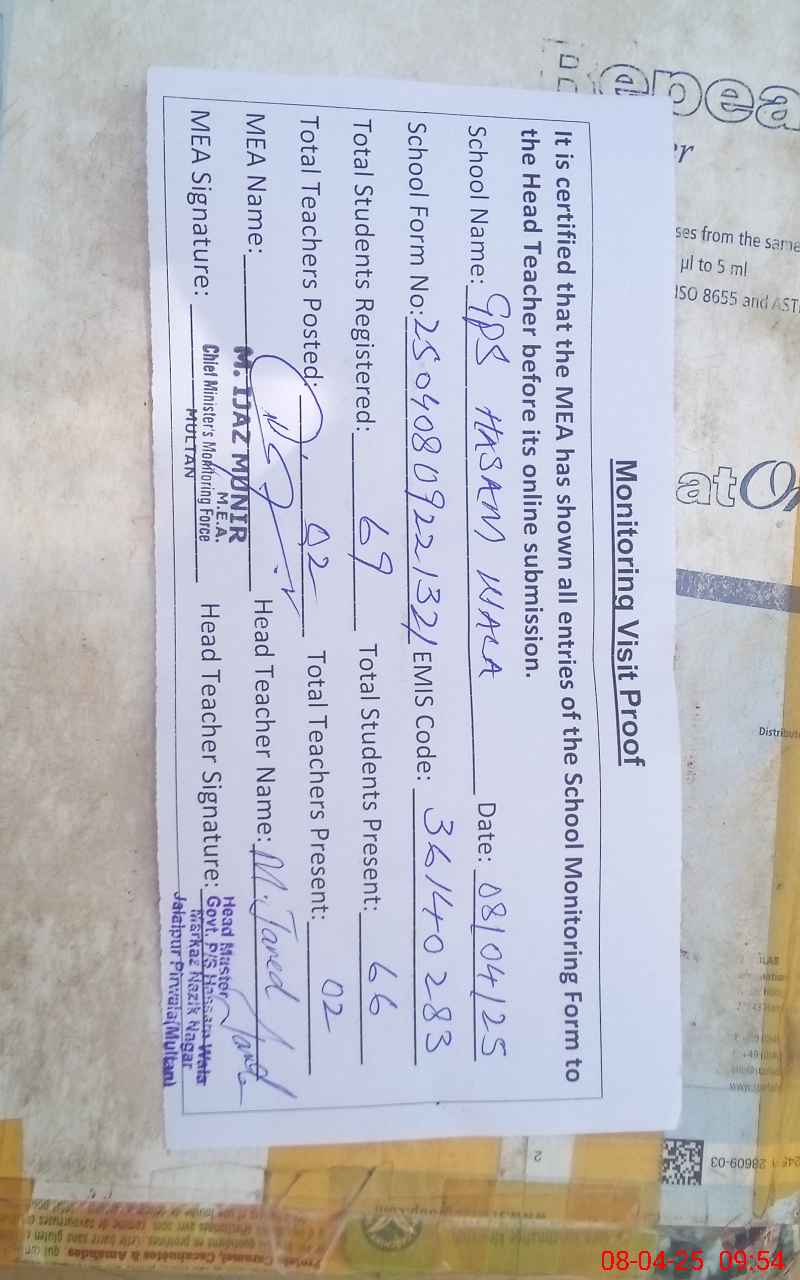 Monitoring Visit Proof
It is certified that the MEA has shown all entries of the School Monitoring Form to
the Head Teacher before its online submission.
School Name: GPS HASAM WALA Date: 08/04/25
School Form No: 2504080922132/ EMIS Code: 36140283
Total Students Registered: 69 Total Students Present: 66
Total Teachers Posted: 02 Total Teachers Present: 02
MEA Name: M. IJAZ MUNIR Head Teacher Name: M. Javed
M.E.A.
MEA Signature: Chief Minister's Monitoring Force Head Teacher Signature:
MULTAN
Head Master
Govt. P/S Hassam Wala
Markaz Nazik Nagar
Jalalpur Pirwala(Multan)
Repea
er
ses from the same
µl to 5 ml
ISO 8655 and AST
at On
Distribut
www.
28609-03
2
08-04-25 09:54